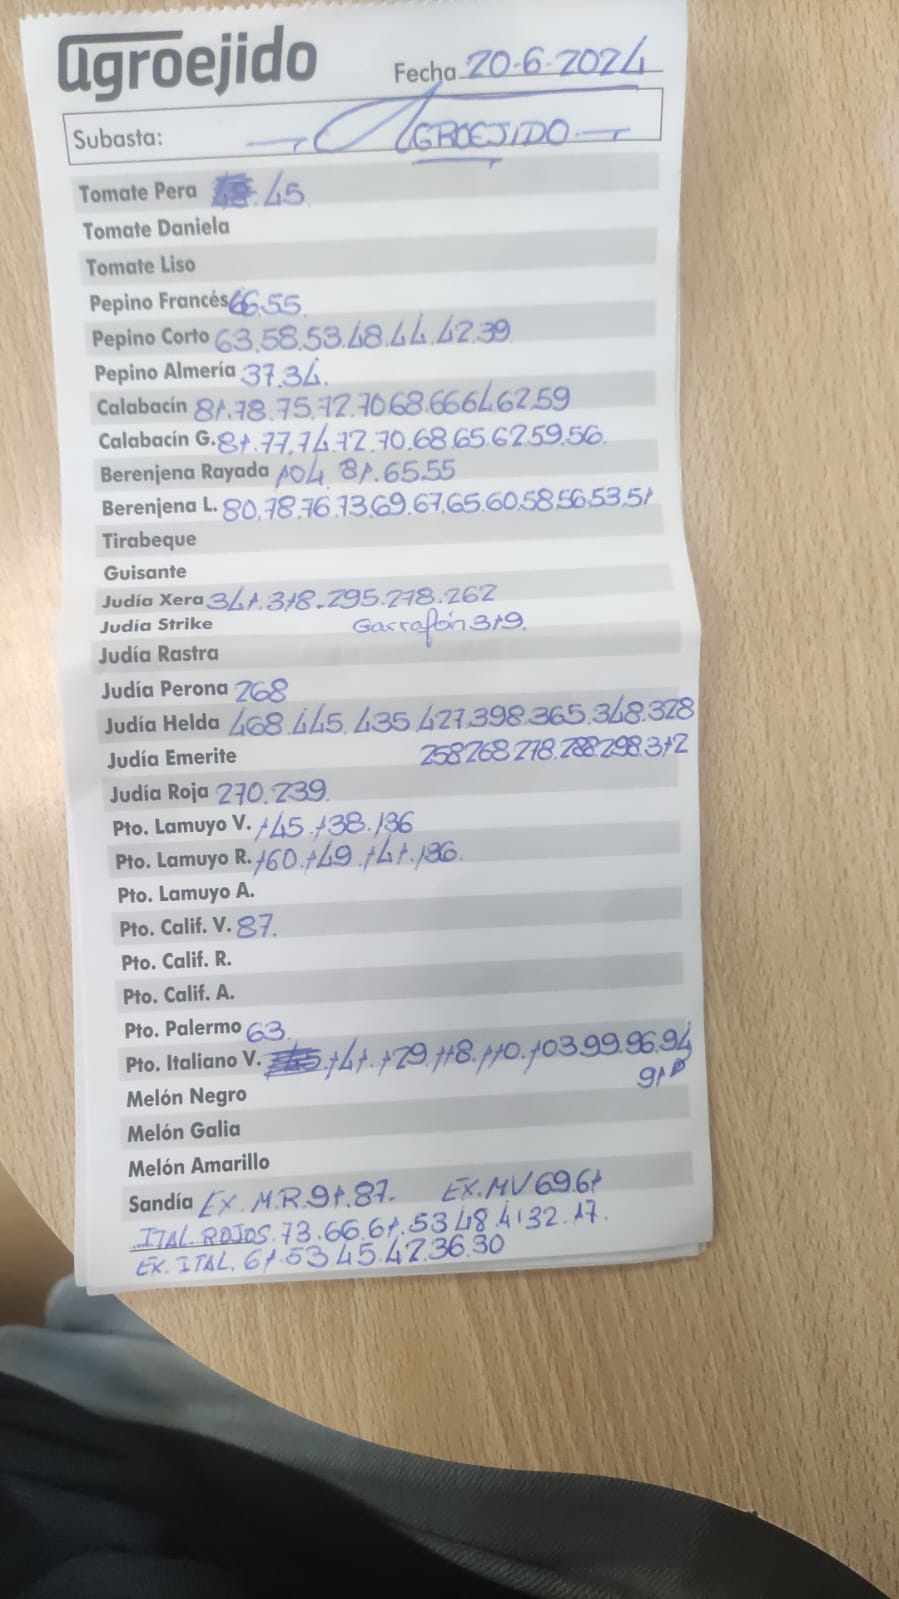 agroejido
Fecha 20-6-2024
Subasta: AGROEJIDO
Tomate Pera 45
Tomate Daniela
Tomate Liso
Pepino Francés 66.55
Pepino Corto 63.58.53.48.44.42.39
Pepino Almería 37.34.
Calabacín 81.78.75.72.70 68.66 64 62.59
Calabacín G. 81.77.74.72.70.68.65.62.59.56.
Berenjena Rayada 104. 81.65.55
Berenjena L. 80.78.76.73.69.67.65.60.58.56.53.51
Tirabeque
Guisante
Judía Xera 341.318.295.278.262
Judía Strike Garrafón 319.
Judía Rastra
Judía Perona 268
Judía Helda 468.445.435.427.398.365.348.328
Judía Emerite 258 268 278.288 298.312
Judía Roja 270.239
Pto. Lamuyo V. 145.138.136
Pto. Lamuyo R. 160.149.141.136.
Pto. Lamuyo A.
Pto. Calif. V. 87.
Pto. Calif. R.
Pto. Calif. A.
Pto. Palermo 63
Pto. Italiano V. 141.129.118.110.103.99.96.94
91
Melón Negro
Melón Galia
Melón Amarillo
Sandía EX. M.R. 91.87. EX. MV 69.61
ITAL. ROJOS. 73.66.61.53 48 41 32.17.
EX. ITAL. 61.53.45.42.36.30